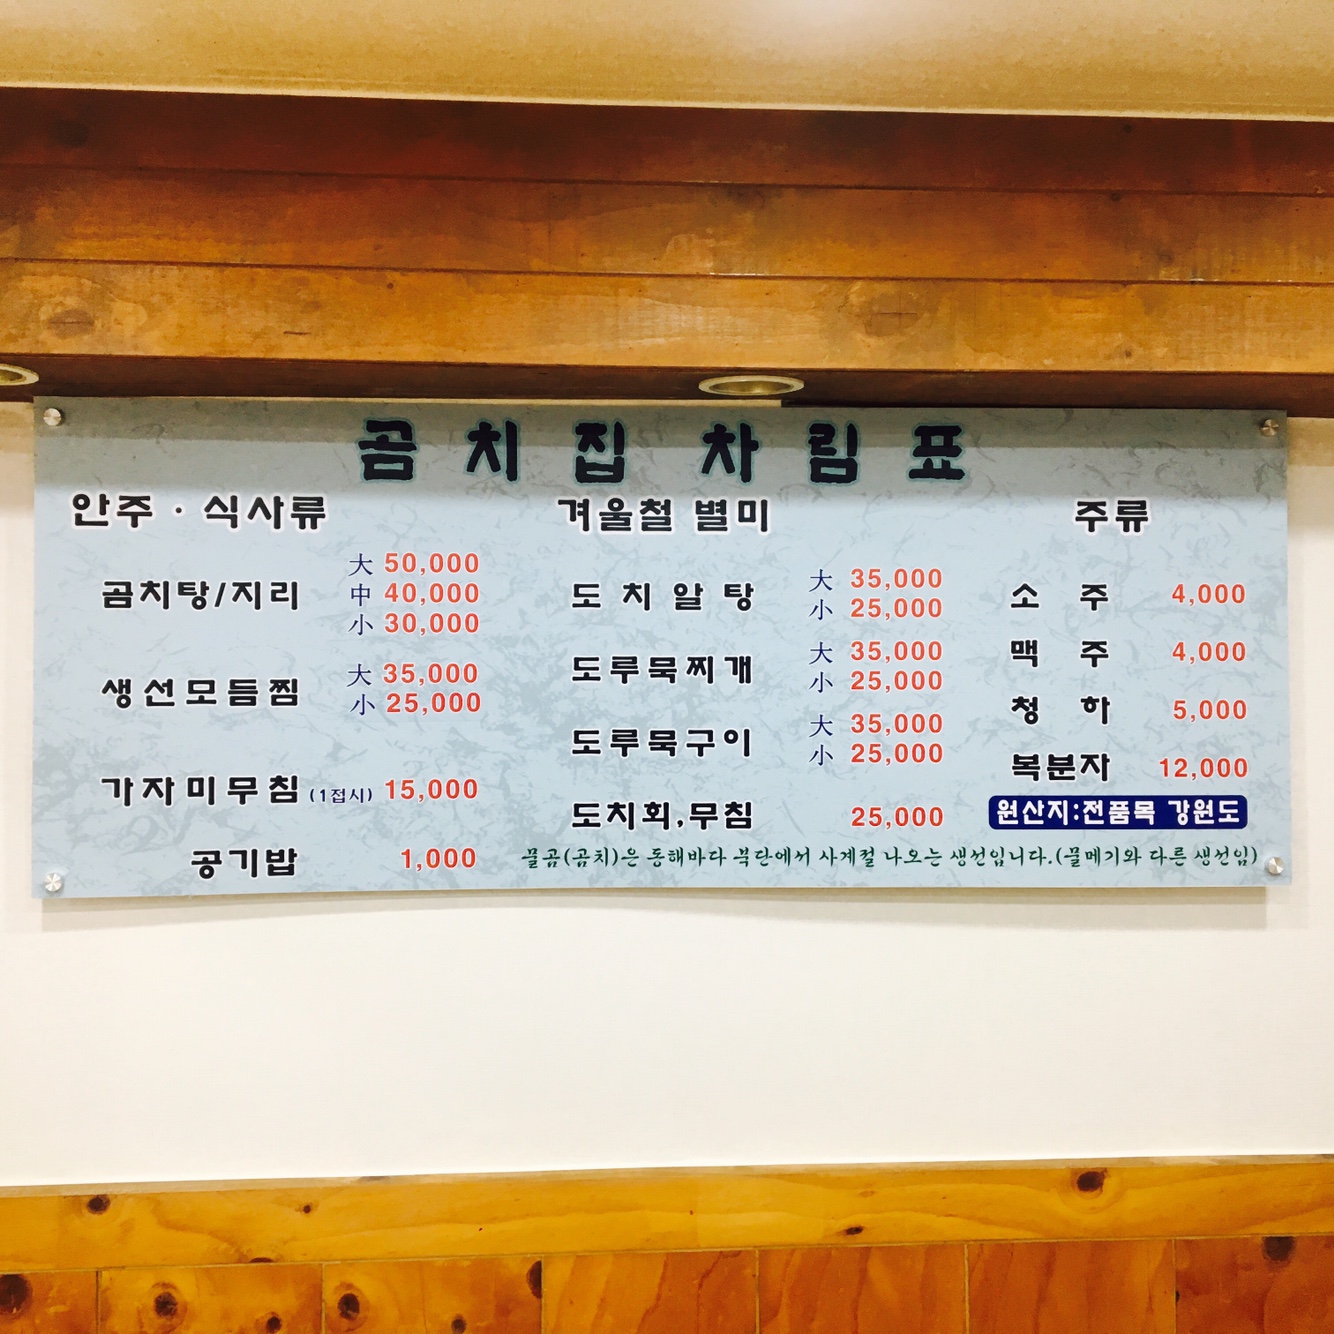 곰치집 차림표
안주 · 식사류
곰치탕/지리
大 50,000
中 40,000
小 30,000
생선모듬찜
大 35,000
小 25,000
가자미무침 (1접시) 15,000
공기밥 1,000
겨울철 별미
도치알탕
大 35,000
小 25,000
도루묵찌개
大 35,000
小 25,000
도루묵구이
大 35,000
小 25,000
도치회,무침 25,000
주류
소주 4,000
맥주 4,000
청하 5,000
복분자 12,000
원산지:전품목 강원도
물곰(곰치)은 동해바다 북단에서 사계절 나오는 생선입니다.(물메기와 다른 생선임)